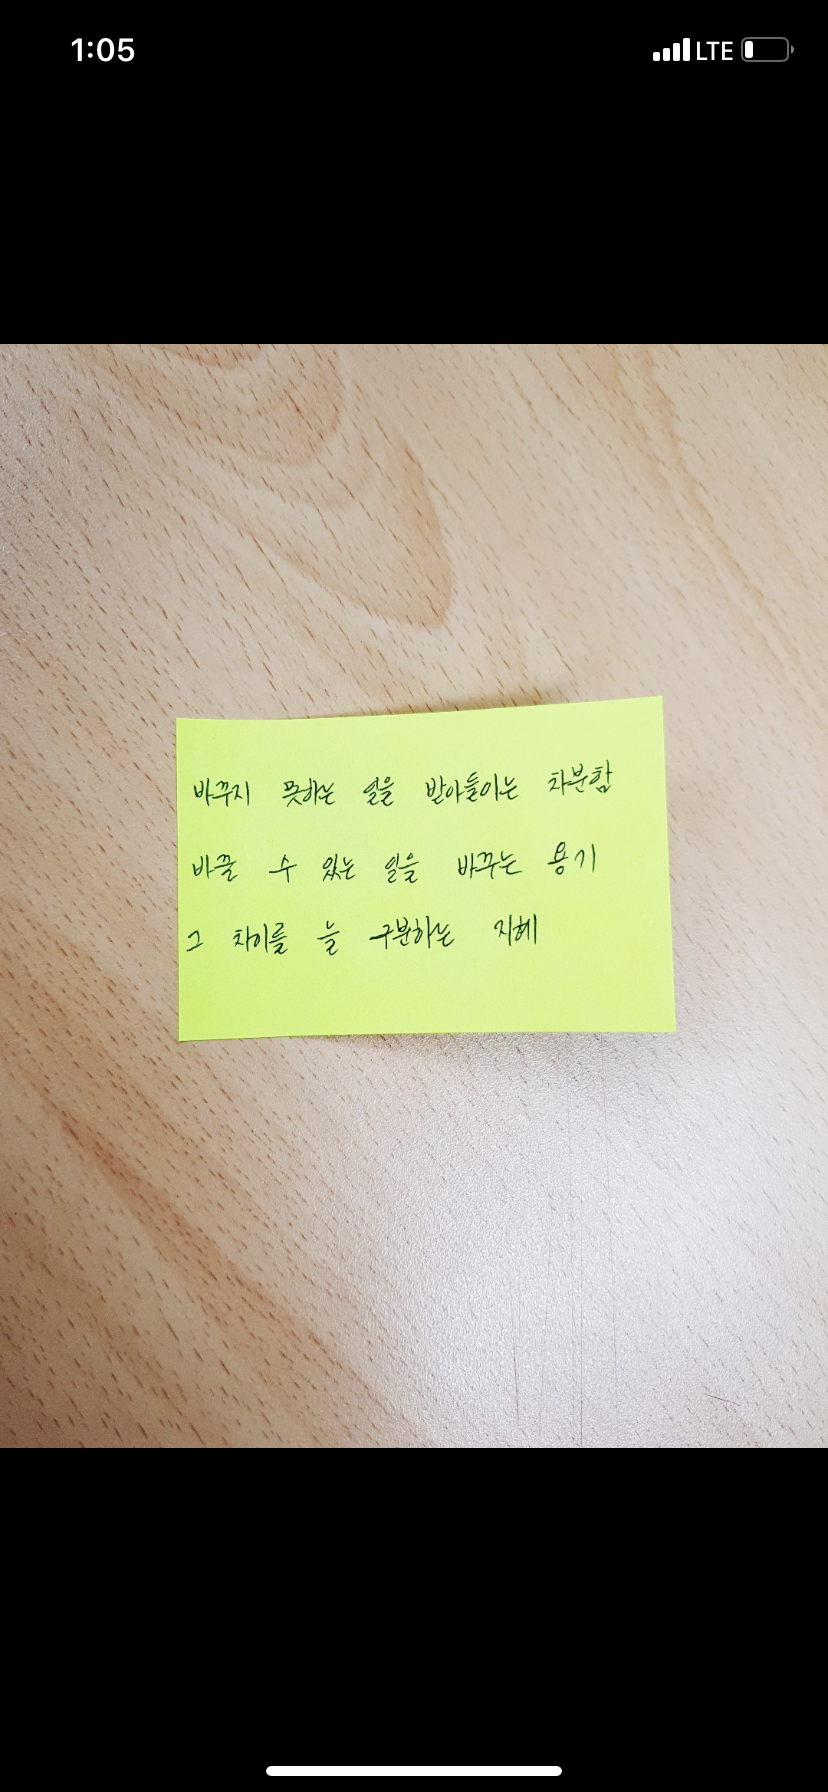 1:05 LTE
바꾸지 못하는 일을 받아들이는 차분함
바꿀 수 있는 일을 바꾸는 용기
그 차이를 늘 구분하는 지혜